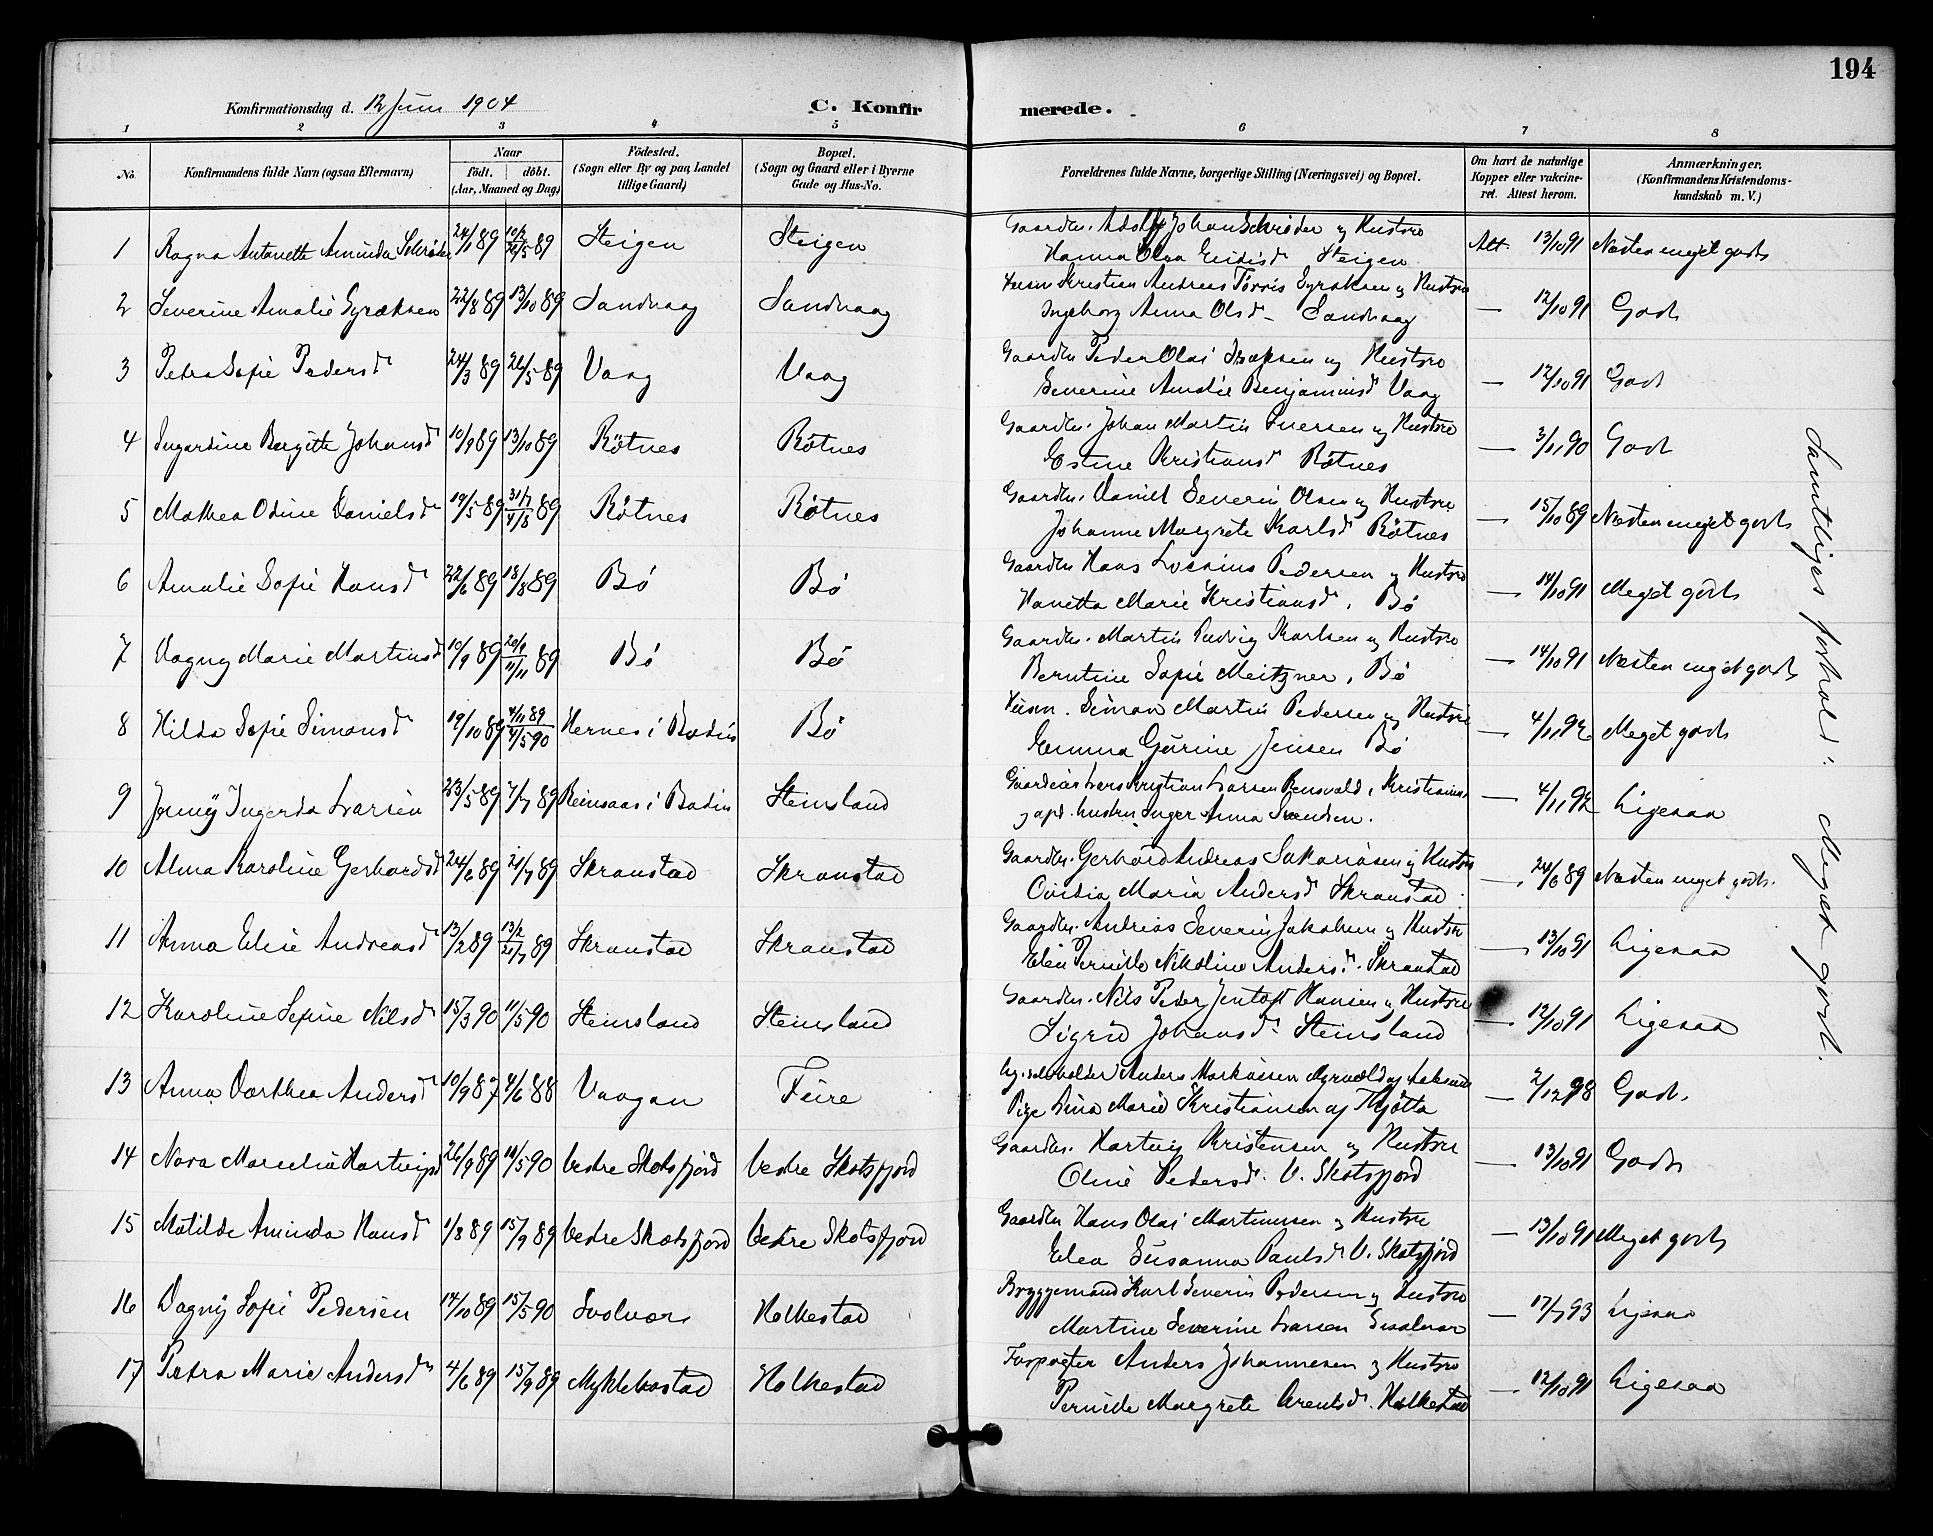 194
Konfirmationsdag d. 12 Juni 1904
C. Konfirmerede.
1 2 3 4 5 6 7 8
No. Konfirmandens fulde Navn (ogsaa Efternavn) Naar födt. döbt. (Aar, Maaned og Dag) Födested. (Sogn eller By og paa Landet tillige Gaard) Bopæl. (Sogn og Gaard eller i Byerne Gade og Hus-No. Forældrenes fulde Navne, borgerlige Stilling (Næringsvei) og Bopæl. Om havt de naturlige Kopper eller vakcineret. Attest herom. Anmærkninger. (Konfirmandens Kristendomskundskab m. V.)
1 Ragna Antonette Aminda Schrøder 24/1 89 10/2 26/5 89 Steigen Steigen Gaardbr. Adolf Johan Schrøder og Hustro Att. 13/10 91 Næsten meget godt
Hanna Olea Steigen
2 Severine Amalie Syræksen 22/8 89 13/10 89 Sandvaag Sandvaag Kristian Andreas Syræksen og Hustro — 12/10 91 Godt
Ingeborg Anna Olsd. Sandvaag
3 Petra Sofie Pedersd 24/3 89 26/5 89 Vaag Vaag Gaardbr. Peder Olai Isaksen og Hustro — 12/10 91 Godt
Severine Amalie Benjaminsd Vaag
4 Ingardine Bergitte Johansd 10/9 89 13/10 89 Røtnes Røtnes Gaardbr. Johan Martin Iversen og Hustro — 3/11 90 Godt
Estine Kristiansd Røtnes
5 Mathea Odine Danielsd 19/5 89 31/7 4/8 89 Røtnes Røtnes Gaardbr. Daniel Severin Olsen og Hustro — 15/10 89 Næsten meget godt
Johanne Margrete Karlsd Røtnes
6 Amalie Sofie Hansd 22/6 89 18/8 89 Bø Bø Gaardbr. Hans Pedersen og Hustro — 14/10 91 Meget godt
Hanetta Marie Kristiansd. Bø
7 Dagny Marie Martinsd 10/9 89 20/9 11/11 89 Bø Bø Gaardbr. Martin Ludvig Karlsen og Hustro — 14/10 91 Næsten meget godt
Berntine Sofie Meitzner, Bø
8 Hilda Sofie Simonsd 19/10 89 4/11 89 4/5 90 Hernes i Bodin Bø Simon Martin Pedersen og Hustro — 4/11 92 Meget godt
Emma Gurine Jensen Bø
9 Jenny Ingerda Larsen 23/5 89 7/7 89 Reinsaas i Bodin Steinsland Lars Kristian Larsen — 4/11 92 Ligesaa
Inger Anna Svendsen.
10 Alma Karoline Gerhardsd 24/6 89 21/7 89 Skranstad Skranstad Gaardbr. Gerhard Andreas Sakariasen og Hustro — 24/8 89 Næsten meget godt.
Ovidia Maria Andersd Skranstad
11 Anna Elie Andreasd 13/2 89 13/2 21/7 89 Skranstad Skranstad Gaardbr. Andreas Severin Jakobsen og Hustro — 13/10 91 Ligesaa
Elen Pernille Nikoline Andersd. Skranstad
12 Karoline Sofine Nilsd 15/3 90 11/5 90 Steinsland Steinsland Gaardbr. Nils Peder Jentoft Hansen og Hustro — 12/10 91 Ligesaa
Sigrid Johansd. Steinsland
13 Anna Dorthea Andersd 10/9 87 4/6 88 Vaagan Feire Anders Markussen — 2/12 98 Godt.
Pige Lina Marie Kristiansen af Tjøtta
14 Nora Marselie Hartvigsd 26/9 89 11/5 90 Vestre Skotsfjord Vestre Skotsfjord Gaardbr. Hartvig Kristensen og Hustro — 13/10 91 Godt
Oline Pedersd. V. Skotsfjord
15 Matilde Aminda Hansd 1/8 89 15/9 89 Vestre Skotsfjord Vestre Skotsfjord Gaardbr Hans Olai Martinussen og Hustro — 13/10 91 Meget godt
Elea Susanna Paulsd V. Skotsfjord
16 Dagny Sofie Pedersen 14/10 89 15/5 90 Svolvær Holkestad Bryggemand Karl Severin Pedersen og Hustro — 17/7 93 Ligesaa
Martine Severine Larsen Svolvær
17 Petra Marie Andersd 4/6 89 15/9 89 Myklebostad Holkestad Forpagter Anders Johannesen og Hustro — 12/10 91 Ligesaa
Pernille Margrete Arentsd. Holkestad
Samtliges forhold: Meget godt.